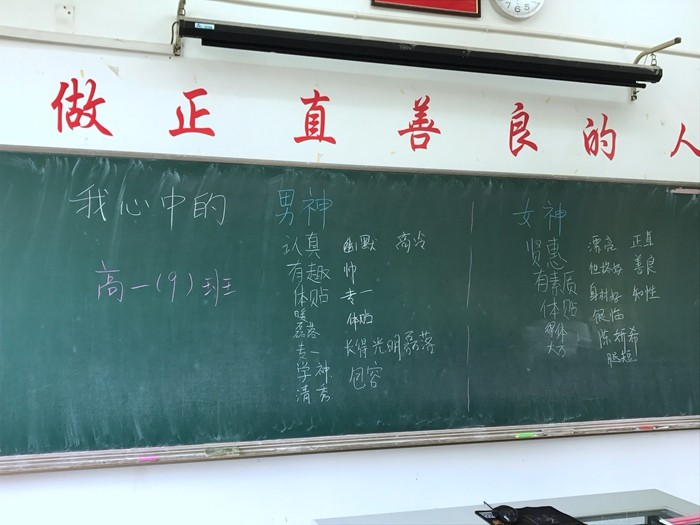 做正直善良的人
我心中的 男神 女神
高一(9)班
认真 幽默 高冷
有趣 帅
体贴 专一
暖 体贴
磊落 长得光明磊落
专一 包容
学神
清秀
贤惠 漂亮 正直
有素质 善良
体贴 身材好 知性
大方
腿短